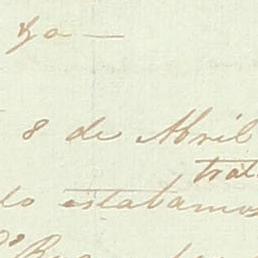 ya —
8 de Abril
trat
do estabamos